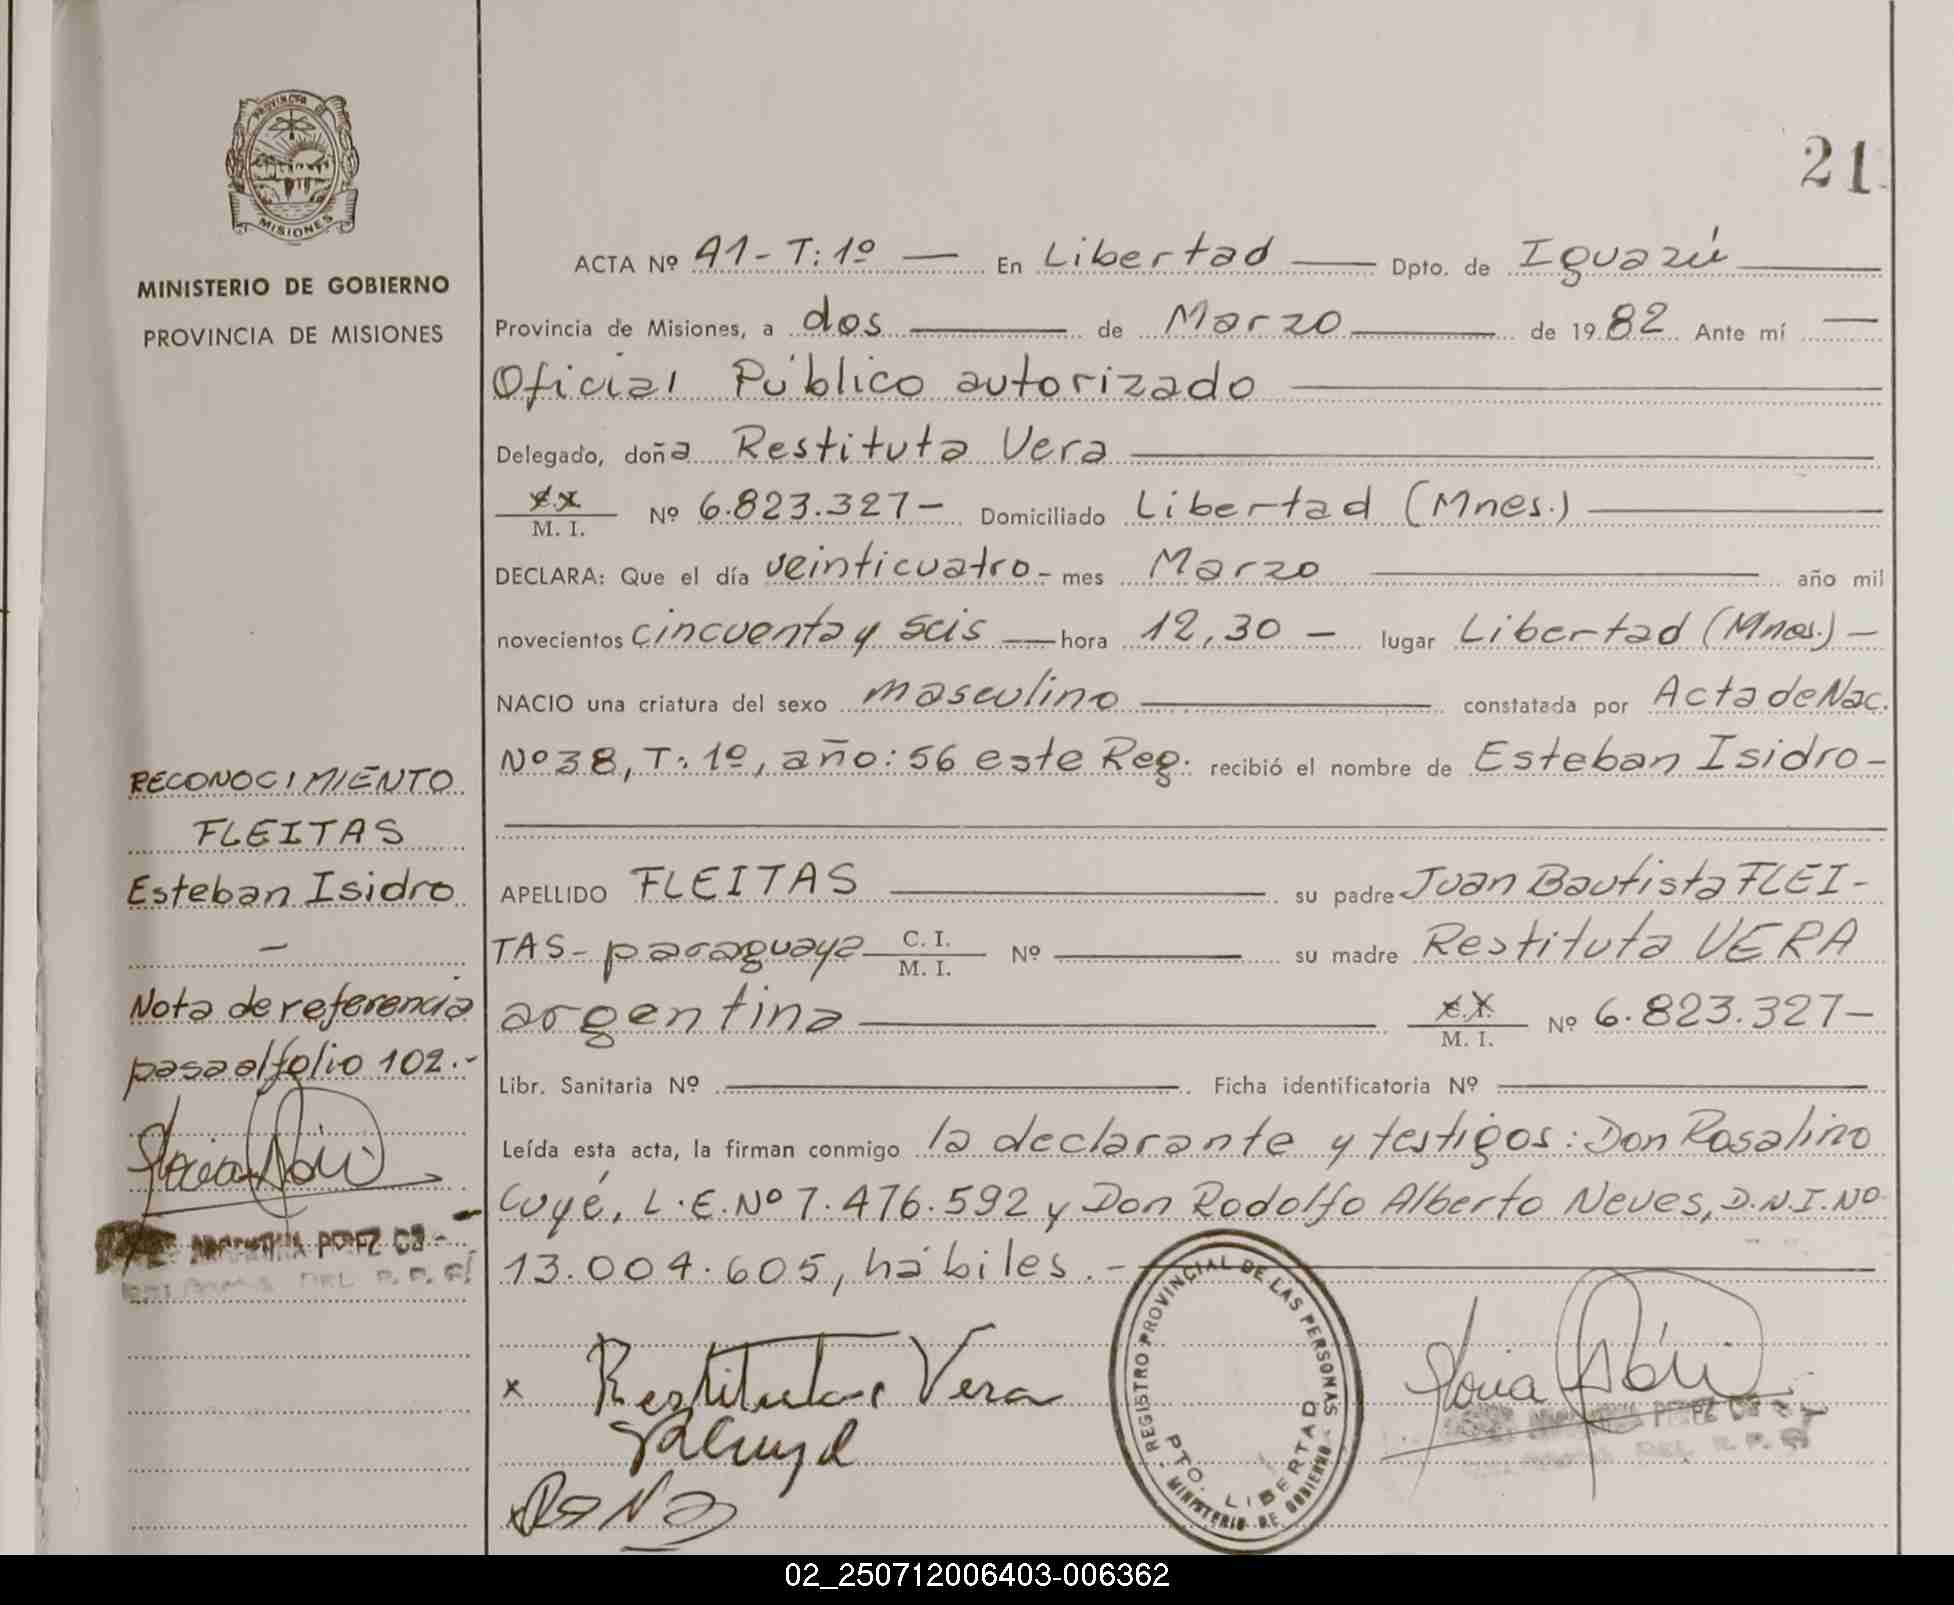 PROVINCIA DE
MISIONES
MINISTERIO DE GOBIERNO
PROVINCIA DE MISIONES
21
ACTA Nº 41-T:1º — En Libertad — Dpto. de Iguazú
Provincia de Misiones, a dos — de Marzo — de 1982 Ante mí —
Oficial Público autorizado
Delegado, doña Restituta Vera
M. I. Nº 6.823.327- Domiciliado Libertad (Mnes.)
DECLARA: Que el día veinticuatro- mes Marzo — año mil
novecientos cincuenta y seis — hora 12,30 - lugar Libertad (Mnes.) -
NACIO una criatura del sexo masculino — constatada por Acta de Nac.
Nº 38, T:1º, año:56 este Reg. recibió el nombre de Esteban Isidro-
APELLIDO FLEITAS — su padre Juan Bautista FLEI-
TAS- paraguaya C. I. M. I. Nº — su madre Restituta VERA
argentina — M. I. Nº 6.823.327-
Libr. Sanitaria Nº — Ficha identificatoria Nº —
Leída esta acta, la firman conmigo la declarante y testigos: Don Rosalino
Cuyé, L.E.Nº 7.476.592 y Don Rodolfo Alberto Neves, D.N.I.Nº
13.004.605, hábiles.-
RECONOCIMIENTO
FLEITAS
Esteban Isidro
-
Nota de referencia
pasa al folio 102.-
PEREZ
DEL R. P. P.
x Restituta Vera
REGISTRO PROVINCIAL DE LAS PERSONAS
PTO. LIBERTAD
- MINISTERIO DE GOBIERNO -
PEREZ
DEL R. P.
02_250712006403-006362